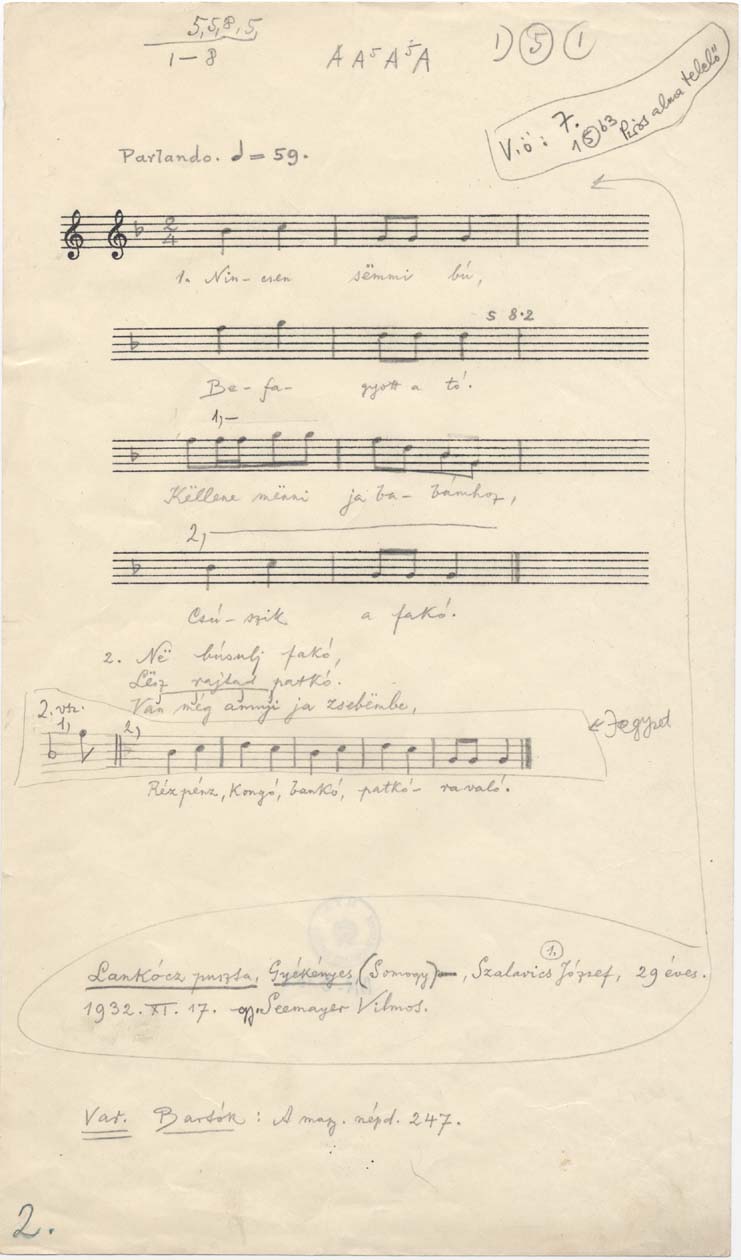 5, 5, 8, 5,
1-8
A A⁵ A⁵ A
1) ⑤ (1
V.ö: 7.
1 ⑤ b3 Piros alma telelő
Parlando. = 59.
2
4
1. Nin- csen sëmmi bú,
5 8·2
Be- fa- gyott a tó.
1,-
Këllene mënni ja ba- bámhoz,
2,
Csú- szik a fakó.
2. Në búsulj fakó,
Lësz rajtad patkó.
Van még annyi ja zsebëmbe,
2. vsz.
1,
2,
← Jegyzet
Réz pénz, Kongó, bankó, patkó- ra való.
Lankócz puszta, Gyékényes (Somogy), Szalavics József, 29 éves.
1.
1932. XI. 17. gy. Seemayer Vilmos.
Var. Bartók: A mag. népd. 247.
2.